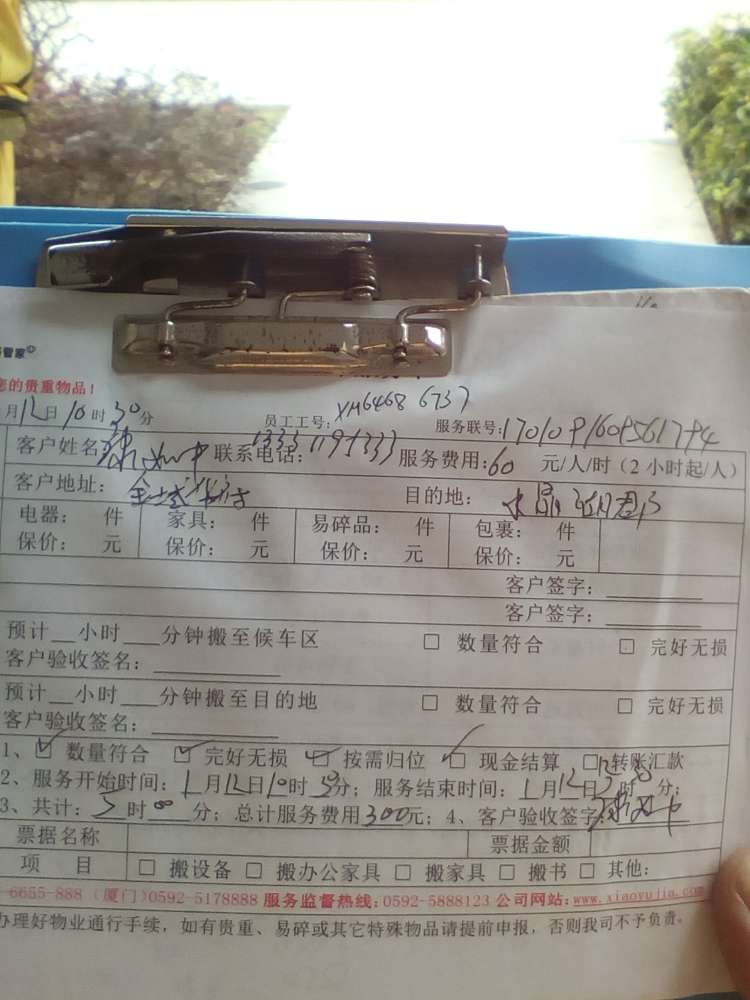 管家©
您的贵重物品！
月12日10时30分 员工工号：XM6468 6737 服务联号：
客户姓名： 联系电话： 服务费用：60 元/人/时（2小时起/人）
客户地址： 目的地：
电器： 件 家具： 件 易碎品： 件 包裹： 件
保价： 元 保价： 元 保价： 元 保价： 元
客户签字：
客户签字：
预计__小时___分钟搬至候车区 □ 数量符合 □ 完好无损
客户验收签名：
预计__小时___分钟搬至目的地 □ 数量符合 □ 完好无损
客户验收签名：
1、☑ 数量符合 ☑ 完好无损 ☑ 按需归位 ☑ 现金结算 □ 转账汇款
2、服务开始时间：1月12日10时30分；服务结束时间：1月12日 时 分；
3、共计： 时00分；总计服务费用300元；4、客户验收签字：
票据名称 票据金额
项 目 □ 搬设备 □ 搬办公家具 □ 搬家具 □ 搬书 □ 其他：
6655-888（厦门）0592-5178888 服务监督热线：0592-5888123 公司网站：www.xiaoyujia.com
办理好物业通行手续，如有贵重、易碎或其它特殊物品请提前申报，否则我司不予负责。